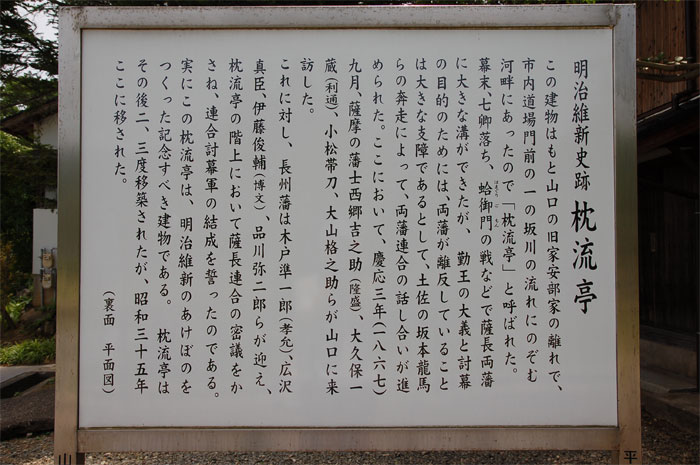 明治維新史跡 枕流亭
この建物はもと山口の旧家安部家の離れで、
市内道場門前の一の坂川の流れにのぞむ
河畔にあったので「枕流亭」と呼ばれた。
幕末、七卿落ち、蛤御門の戦などで薩長両藩
に大きな溝ができたが、勤王の大義と討幕
の目的のためには、両藩が離反していること
は大きな支障であるとして、土佐の坂本龍馬
らの奔走によって、両藩連合の話し合いが進
められた。ここにおいて、慶応三年(一八六七)
九月、薩摩の藩士西郷吉之助(隆盛)、大久保一
蔵(利通)、小松帯刀、大山格之助らが山口に来
訪した。
これに対し、長州藩は木戸準一郎(孝允)、広沢
真臣、伊藤俊輔(博文)、品川弥二郎らが迎え、
枕流亭の階上において薩長連合の密議をか
さね、連合討幕軍の結成を誓ったのである。
実にこの枕流亭は、明治維新のあけぼのを
つくった記念すべき建物である。 枕流亭は
その後二、三度移築されたが、昭和三十五年
ここに移された。
(裏面 平面図)
平
山